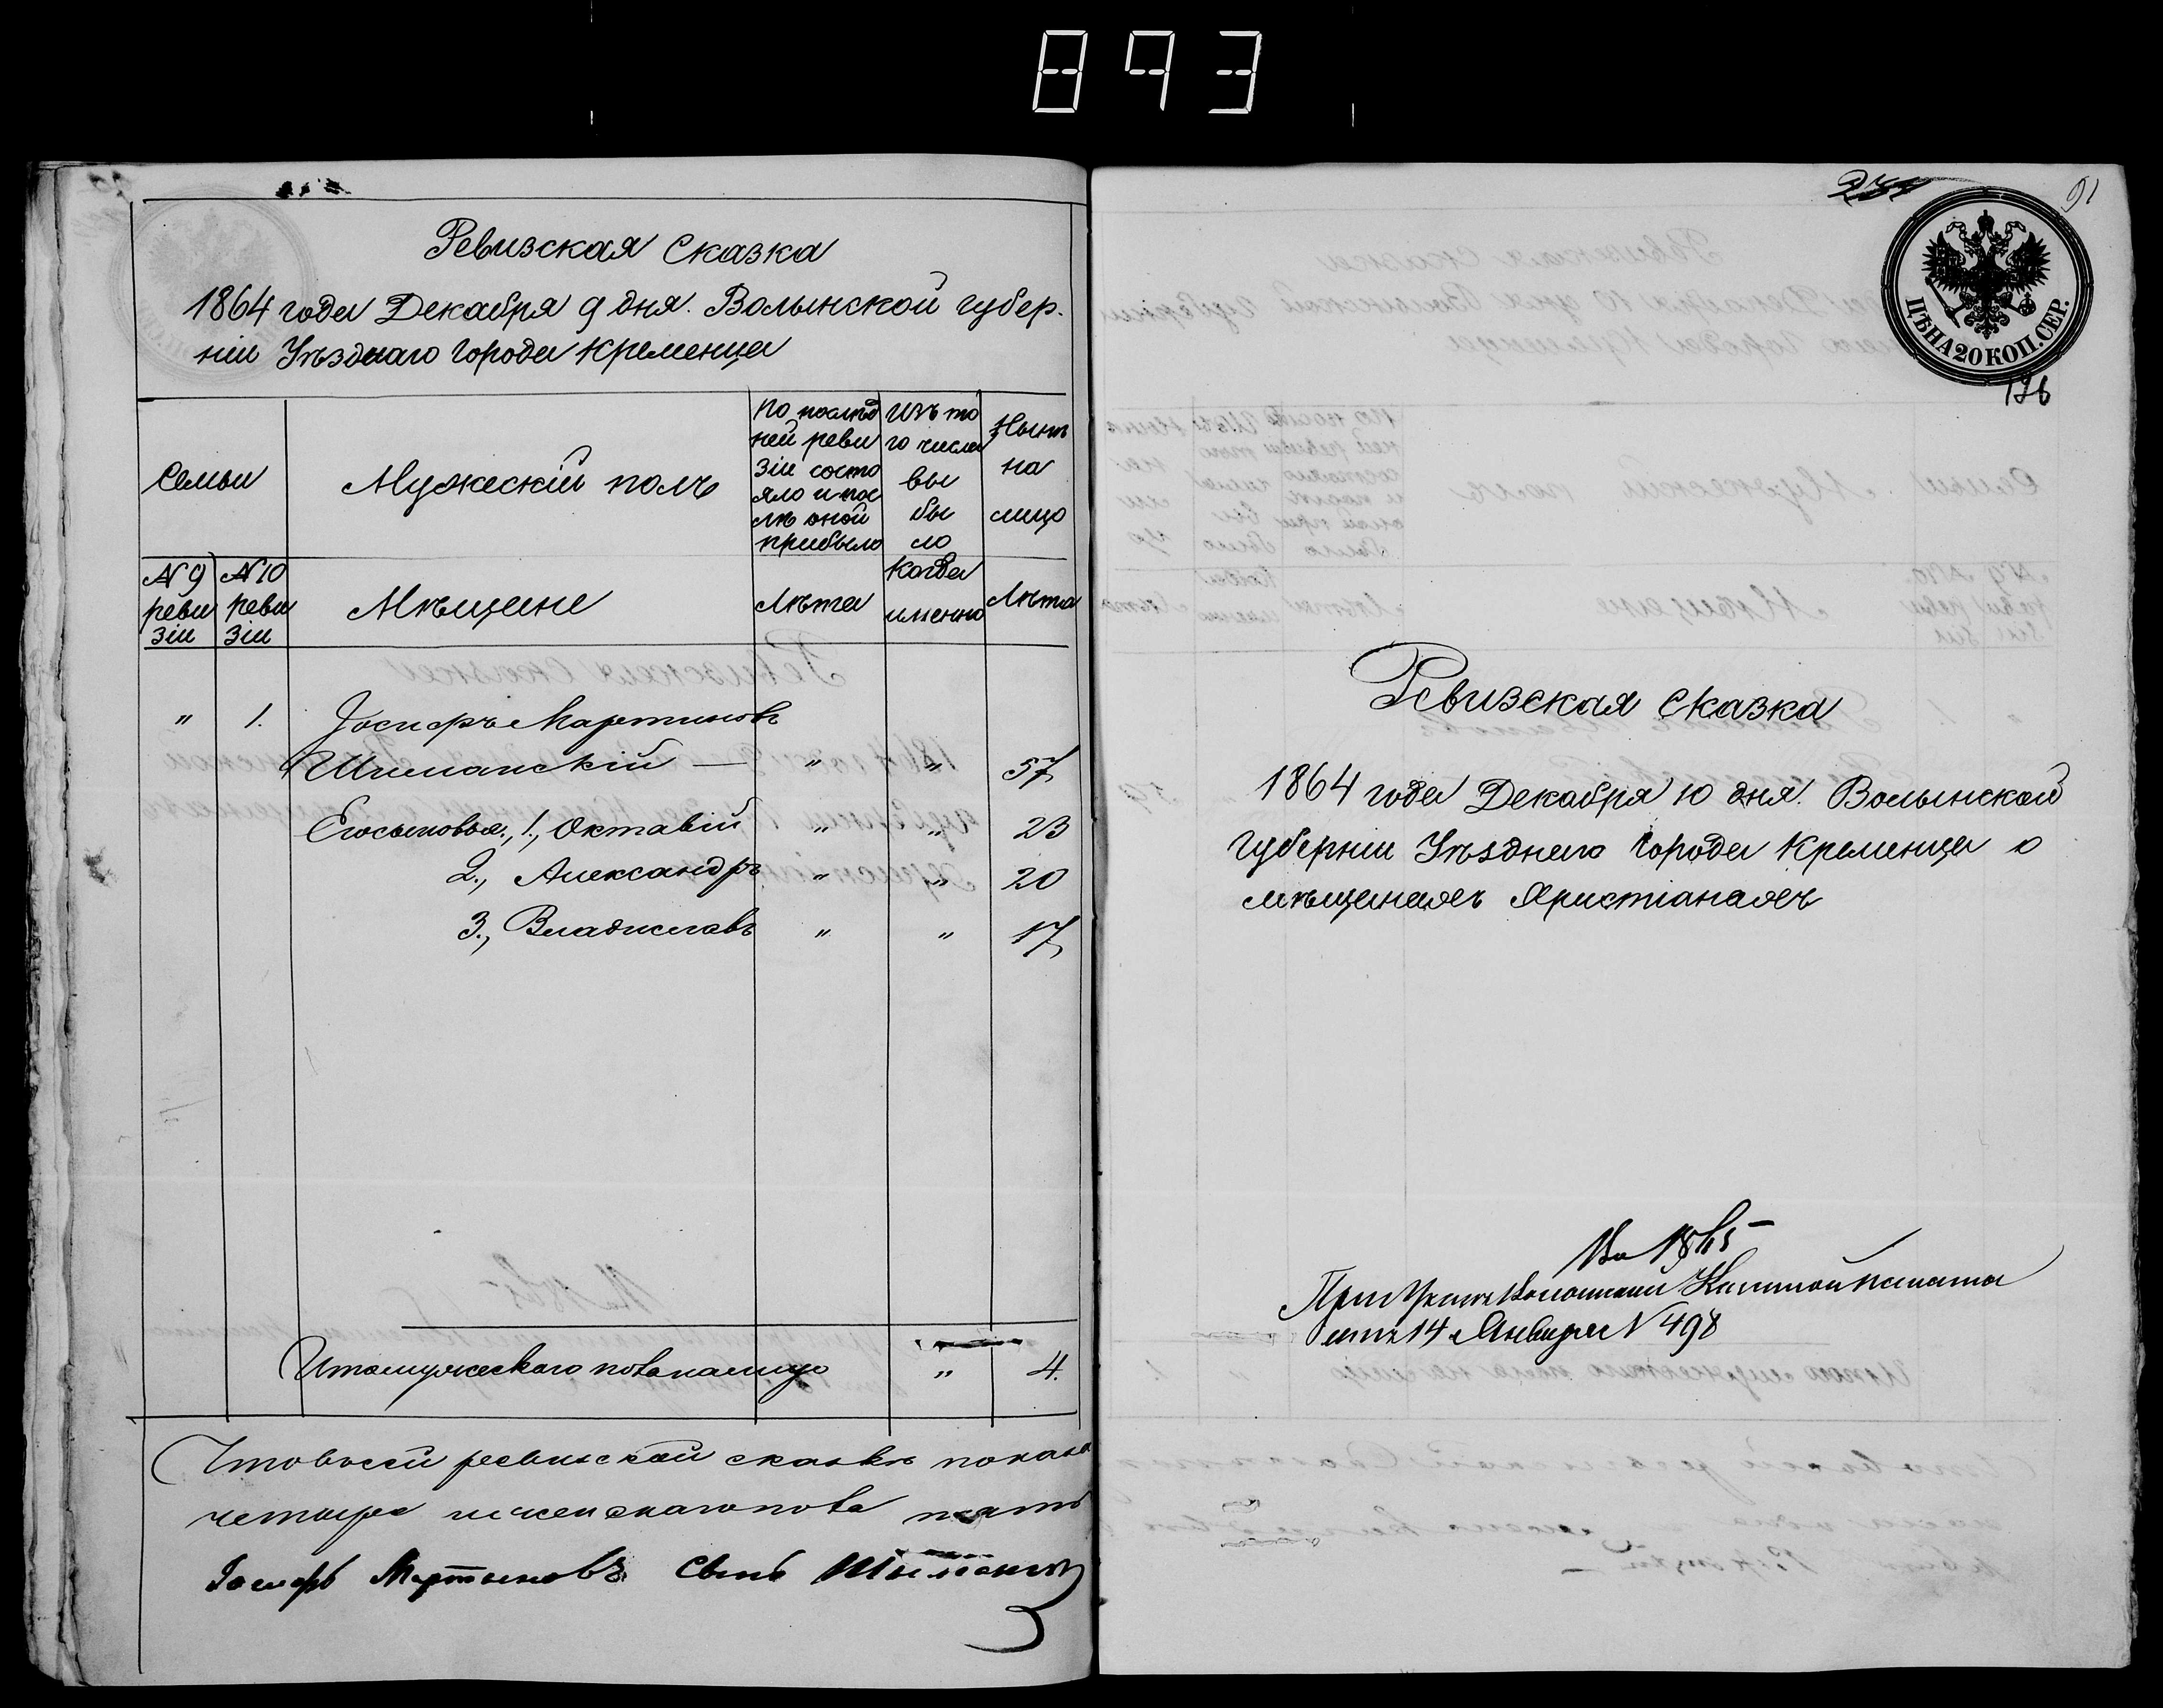 893
Ревизская Сказка
1864 года Декабря 9 дня. Волынской губер.
ніи Уѣзднаго Города Кременца
Семьи
Мужескій полъ
По послѣд
ней реви
зіи состо
яло и пос
лѣ оной
прибыло
Изъ то
го числа
вы
бы
ло
Нынѣ
на
лицо
№ 9
реви
зіи
№ 10
реви
зіи
Мѣщане
Лѣта
Когда
именно
Лѣта
" 1. Іосифъ Мартиновъ
Шиманскій — " " 57
Егосыновья: 1., Октавій " " 23
2., Александръ " " 20
3., Владиславъ " " 17
Итого мужескаго пола налицо " 4.
Что въ сей ревизской сказкѣ показа
четыре и женскаго пола
Іосифъ Мартыновъ Сынъ
91
ЦѢНА 20 КОП. СЕР.
126
Ревизская Сказка
1864 года Декабря 10 дня. Волынской
Губерніи Уѣзднаго Города Кременца о
мѣщанахъ Христіанахъ
На 1865
При Указѣ Волынской Казенной палаты
отъ 14 Января № 498